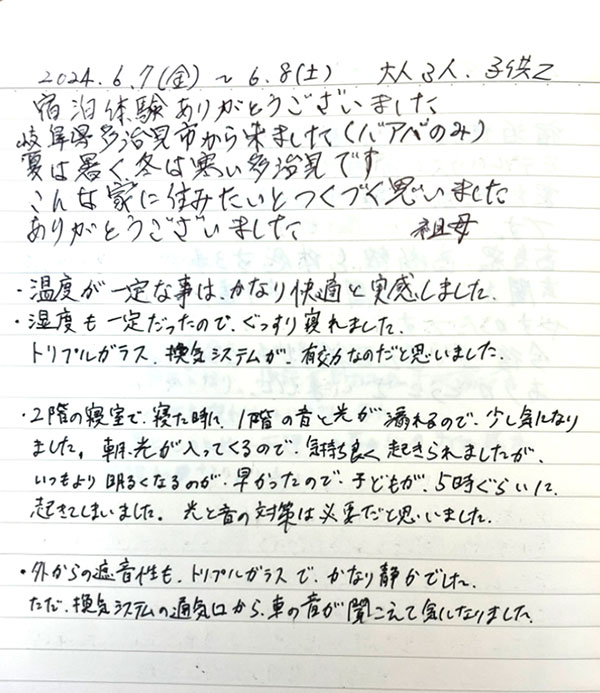 2024.6.7(金)~6.8(土) 大人3人、子供2
宿泊体験ありがとうございました
岐阜県多治見市から来ました(バアバのみ)
夏は暑く、冬は寒い多治見です
こんな家に住みたいとつくづく思いました
ありがとうございました 祖母
・温度が一定な事は、かなり快適と実感しました。
・湿度も一定だったので、ぐっすり寝れました。
トリプルガラス、換気システムが、有効なのだと思いました。
・2階の寝室で、寝た時に、1階の音と光が漏れるので、少し気になり
ました。朝、光が入ってくるので、気持ち良く起きられましたが、
いつもより明るくなるのが、早かったので、子どもが、5時ぐらいに、
起きてしまいました。光と音の対策は必要だと思いました。
・外からの遮音性も、トリプルガラスで、かなり静かでした。
ただ、換気システムの通気口から、車の音が聞こえて気になりました。